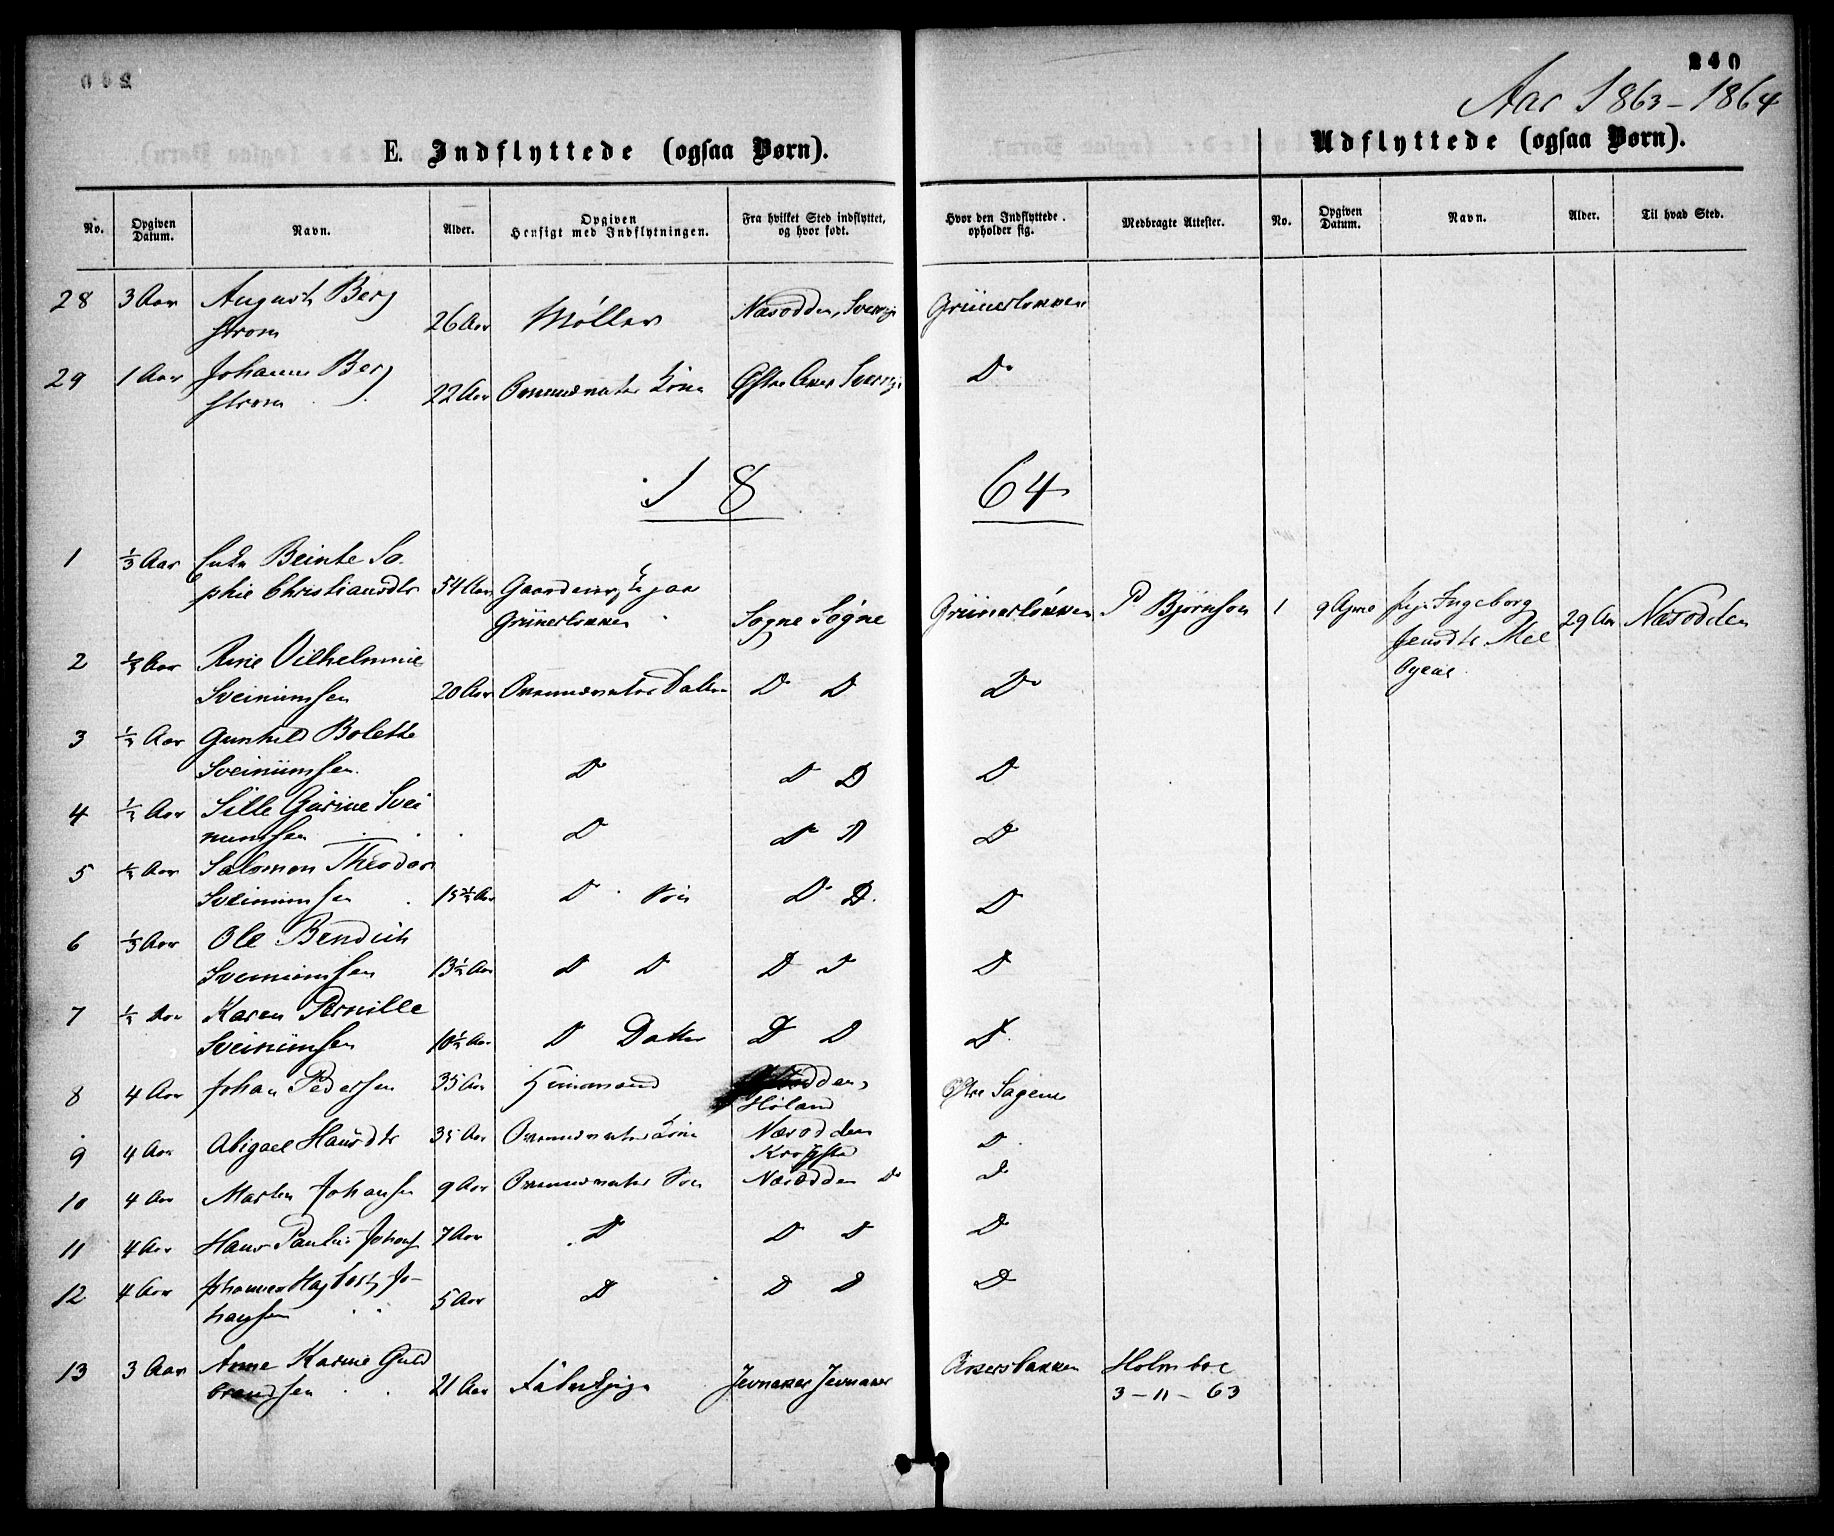 240
Aar 1863-1864
E. Indflyttede (ogsaa Børn).
Udflyttede (ogsaa Børn).
No. Opgiven Datum. Navn. Alder. Opgiven Hensigt med Indflytningen. Fra hvilket Sted indflyttet, og hvor født. Hvor den Indflyttede opholder sig. Medbragte Attester. No. Opgiven Datum. Navn. Alder. Til hvad Sted.
28 3 Aar August Berg
strom 26 Aar Møller Næsodden, Sverrig Grünerløkken
29 1 Aar Johanne Berg
strom 22 Aar Kone Østre Aker Sverrig Do
1864
1 ½ Aar Enke Beinte So
phie Christiansdtr 54 Aar Gaardeier paa
Grünerløkken Sogne Søgne Grünerløkken P Bjørnson 1 Ingeborg
Jensdtr 29 Aar Næsodden
2 ½ Aar Anne Vilhelmine
Sveinunsen 20 Aar Datter D D Do
3 ½ Aar Gunhild Bolette
Sveinunsen D D D D
4 ½ Aar Sille Gurine Svei
nunsen D D D D
5 ½ Aar Salomon Theodor
Sveinunsen 15½ Aar D Søn D D D
6 ½ Aar Ole Bendich
Sveinunsen 13½ Aar D D D D D
7 ½ Aar Karen Pernille
Sveinunsen 10½ Aar D Datter D D D
8 4 Aar Johan Pedersen 35 Aar Næsodden,
Høland Øvre Sagene
9 4 Aar Abigael Hansdtr 35 Aar Kone Næsodden
Krogstad D
10 4 Aar Martin Johansen 9 Aar Søn Næsodden Do D
11 4 Aar Hans Paulin Johans 7 Aar D D D D
12 4 Aar Johannes Hagbart Jo-
hansen 5 Aar D D D D
13 3 Aar Anne Karine Guld
brandsen 21 Aar Fabrikpige Jevnaker Jevnaker Akersbakken Holmboe
3-11-63